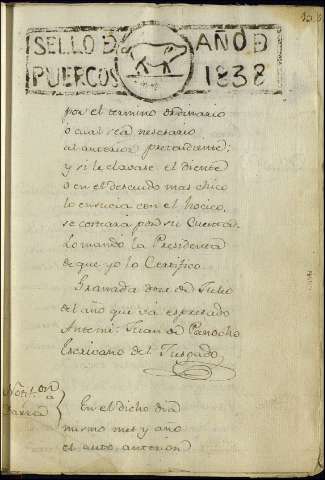 SELLO D AÑO D
PUERCOS 1838
por el termino ordinario
ó cual sea nesesario
al anterior pretendiente;
y si le clavase el diente
o en el descuido mas chico
lo ensucia con el hocico,
se costeará por su Cuenta.
Lo mandó la Presidenta
de que yo lo Certifico.
Granada doce de Julio
del año que vá espresado
Antemi: Juan de Panocho
Escrivano del Jusgado,
Notif.on
a
En el dicho dia
mismo mes y año
el auto anterior